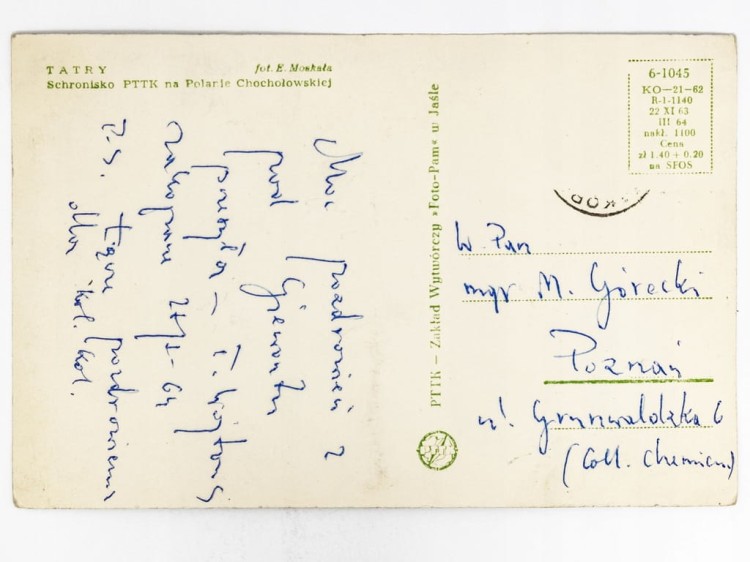 TATRY
fot. E. Moskała
Schronisko PTTK na Polanie Chochołowskiej
Moc pozdrowień z
pod Giewontu
przesyła – T. Wojtowicz
Zakopane 24/I-64
P.S. Łączę pozdrowienia
dla kol. kol.
PTTK – Zakład Wytwórczy »Foto-Pam« w Jaśle
6-1045
KO—21—62
R-1-1140
22 XI 63
III 64
nakł. 1100
Cena
zł 1.40 + 0.20
na SFOS
W. Pan
mgr M. Górecki
Poznań
ul. Grunwaldzka 6
(Coll. Chemicum)